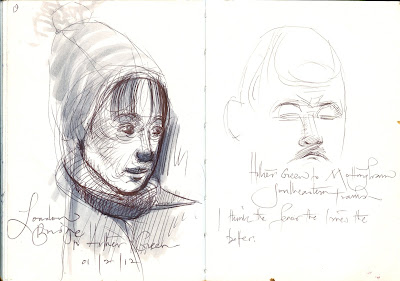 London
Bridge
to Hither Green
01/2/12
Hither Green to Mottingham
Southeastern trains
I think the fewer the lines the
better.